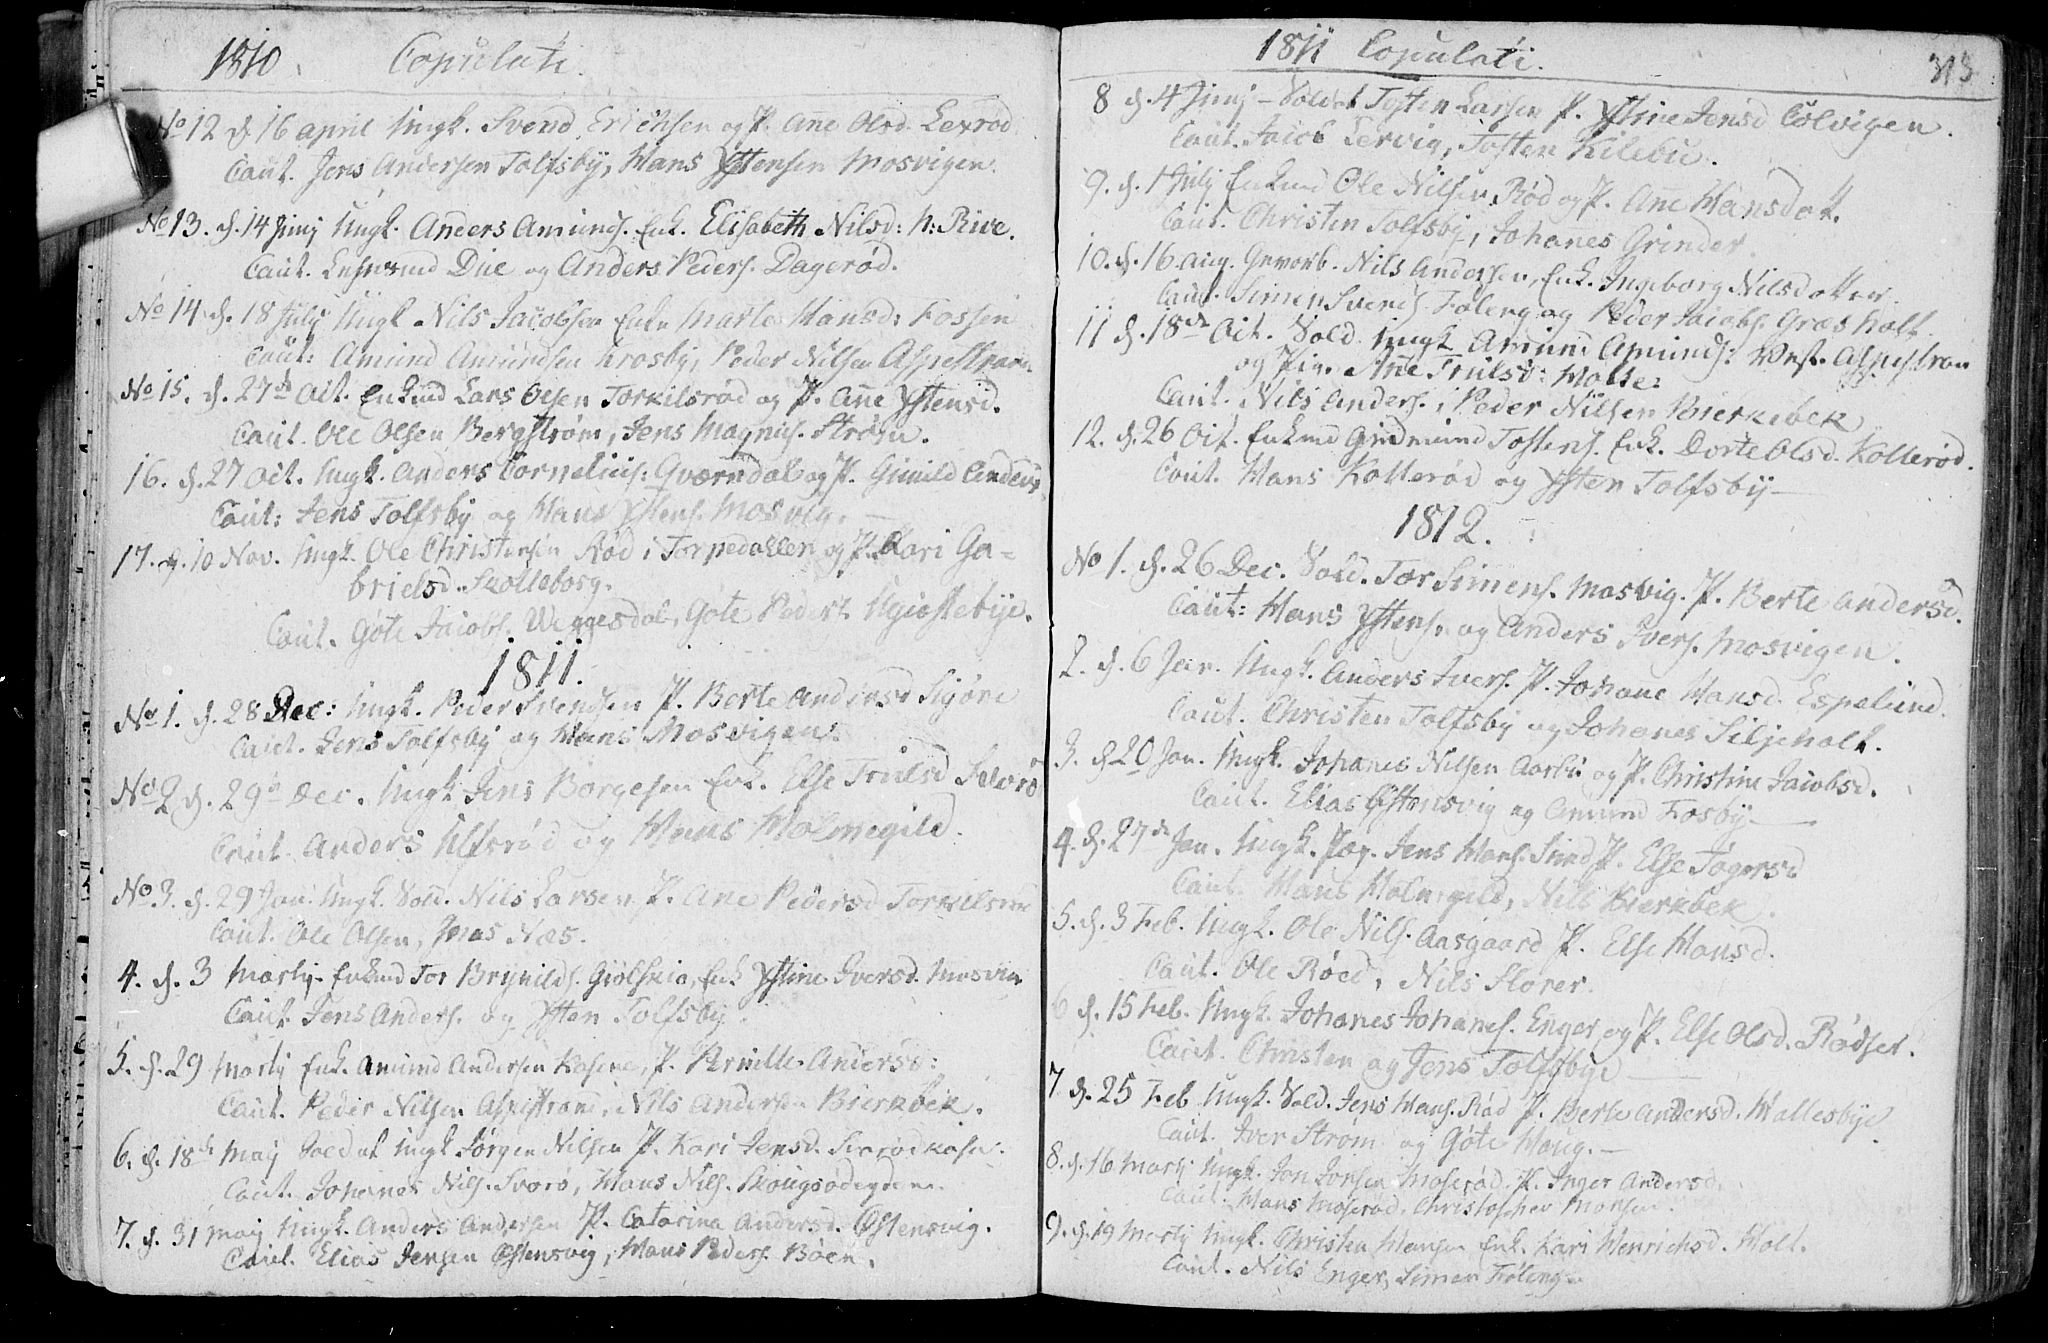 1810. Copulati.
No 12 d. 16 april Ungk. Svend Erichsen og P. Ane Olsd. Lexrød
Caut. Jens Andersen Tolfsby, Hans Ystensen Mosvigen.
No 13. d. 14 Junj Ungk. Anders Amunds. Enk. Elisabeth Nilsd: N: Rive.
Caut. Lehnsmd Due og Anders Peders. Dagerød.
No 14 d. 18 July Ungk Nils Jacobsen Enke Marte Hansd: Fossen
Caut: Amund Amundsen Krosby, Peder Nilsen Aspestrand.
No 15. d. 27de Oct. Enkmd Lars Olsen Torkilsrød og P. Ane Ystensd.
Caut. Ole Olsen Bergstrøm, Jens Magnus. Strøm.
16. d. 27 Oct. Ungk. Anders Cornelius: Qværndal og P. Gunild Anders
Caut: Jens Tolfsby og Hans Ystens. Mosvig.
17. d. 10 Nov. Ungk. Ole Christensen Rød i Torpedallen og P. Kari Ga=
brielsd. Skolleborg.
Caut. Gøte Jacobs. Weggesdal, Gøte Peders.
1811.
No 1. d. 28 Dec: Ungk. Peder Svendsen P. Berte Andersd
Caut. Jens Tolfsby og Hans Mosvigen.
No 2 d. 29de Dec. Ungk. Jens Børgesen Enk. Else Trulsd
Caut. Anders Ulfsrød og Hans Holmegild.
No 3. d. 29 Jan. Ungk. Sold. Nils Larsen P. Ane Pedersd Torkelsrud
Caut. Ole Olsen, Jonas Næs.
4. d. 3 Martij. Enkmd Tor Brynilds. Giølskiø, Enk Ystine Iversd. Mosvig
Caut. Jens Anders. og Ysten Tolfsby.
5. d. 29 Martij Enk. Amund Andersen Kasene, P. Pernille Andersd:
Caut. Peder Nilsen Aspestrand, Nils Andersen Bierkbek.
6. d. 18de Maij Soldat Ungk Jørgen Nilsen P. Kari Jensd.
Caut. Johanes Nils. Svorø, Hans Nils. Skougsødegden.
7. d. 31 Maij Ungk. Anders Andersen P. Catarina Andersd. Østensvig.
Caut. Elias Jensen Østensvig, Hans Peders. Bøen.
1811 Copulati. 313
8 d. 4 Junj - Soldat Tosten Larsen P. Ystine Jensd Colvigen.
Caut. Jacob Lervig, Tosten Kilebu.
9. d. 1 Julij Enkmd Ole Nilsen Rød og P. Ane Hansdatt.
Caut. Christen Tolfsby, Johanes Grinder.
10. d. 16 Aug. Gevorb. Nils Andersen, Enk. Ingeborg Nilsdatter.
Caut. Simen Svends. Føleng og Peder Jacobs. Græsholt
11 d. 18de Oct. Sold. Ungk Amund Amunds: Vest. Aspestran
og Pig. Ane Trulsd: Holte:
Caut. Nils Anders. i Peder Nilsen Bierkebek
12. d. 26 Oct. Enkmd Gudmund Tostens. Enk. Dorte Olsd. Kollerød.
Caut. Hans Kollerød og Ysten Tolfsby
1812.
No 1. d. 26 Dec. Sold. Tor Simens. Mosvig. P. Berte Andersd.
Caut: Hans Ystens. og Anders Ivers. Mosvigen.
2. d. 6 Jan. Ungk. Anders Ivers. P. Johane Hansd. Espelund.
Caut. Christen Tolfsby og Johanes Siljeholt.
3. d 20 Jan. Ungk. Johanes Nilsen Aarbu og P. Christine Jacobsd.
Caut. Elias Østensvig og Amund Fosby.
4. d. 27de Jan. Ungk. Jens Hans. Sund P. Else Tøgersd
Caut. Hans Holmegild, Nils Bierkbek.
5. d. 3 Feb. Ungk. Ole Nils. Aasgaard P. Else Hansd.
Caut. Ole Røed, Nils Slorer.
6 d. 15 Feb. Ungk. Johanes Johanes. Enger og P. Else Olsd. Rødset.
Caut. Christen og Jens Tolfsbye
7 d. 25 Feb Ungk. Sold. Jens Hans. Rød P. Berte Andersd. Hallesbye.
Caut. Iver Strøm og Gøte Haug.
8. d. 16 Martij Ungk. Jon Jonsen Moserød. P. Inger Andersd.
Caut. Hans Moserød. Christopher Monsen.
9. d. 19 Martij Ungk. Christen Hansen Enk. Kari Henrichsd. Holt.
Caut. Nils Enger, Simen Føleng.